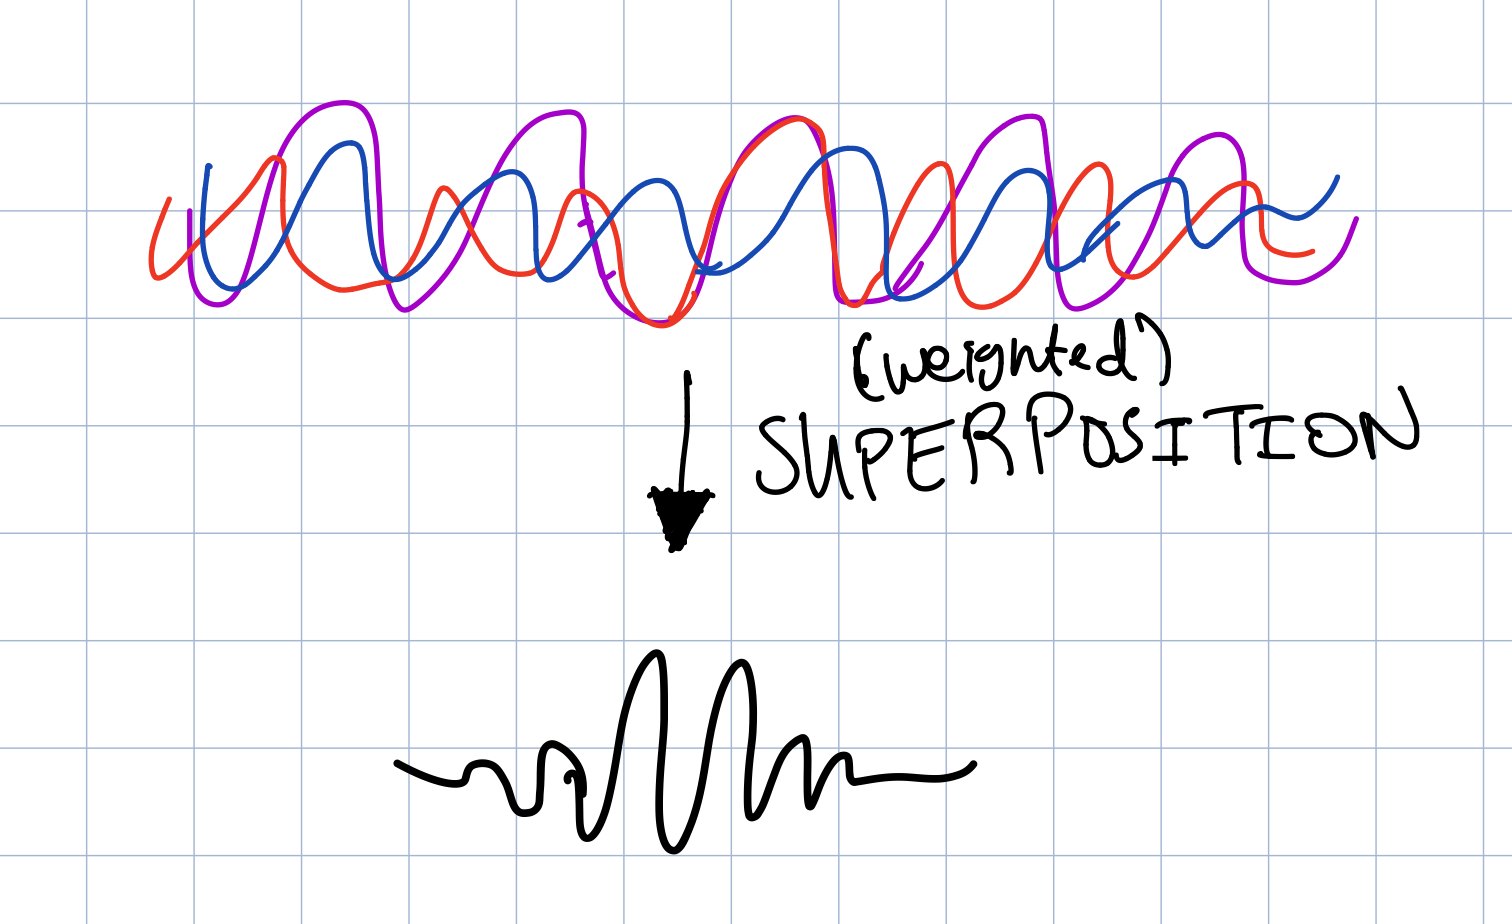 (weighted)
SUPERPOSITION